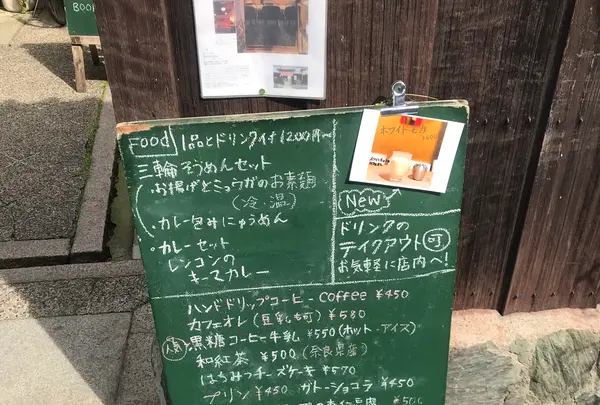 BOOK
Food 1品とドリンク付 1200円〜
三輪そうめんセット
・お揚げとミョウガのお素麺
(冷 温)
・カレー包みにゅうめん
・カレーセット
レンコンの
キーマカレー
ホワイトモカ
New
ドリンクの
テイクアウト 可
お気軽に店内へ!
ハンドドリップコーヒー Coffee ¥450
カフェオレ(豆乳も可) ¥580
人気 黒糖コーヒー牛乳 ¥550(ホット・アイス)
和紅茶 ¥500 (奈良県産)
はちみつチーズケーキ ¥570
プリン ¥450 ガトーショコラ ¥450
杏仁豆腐 ¥500